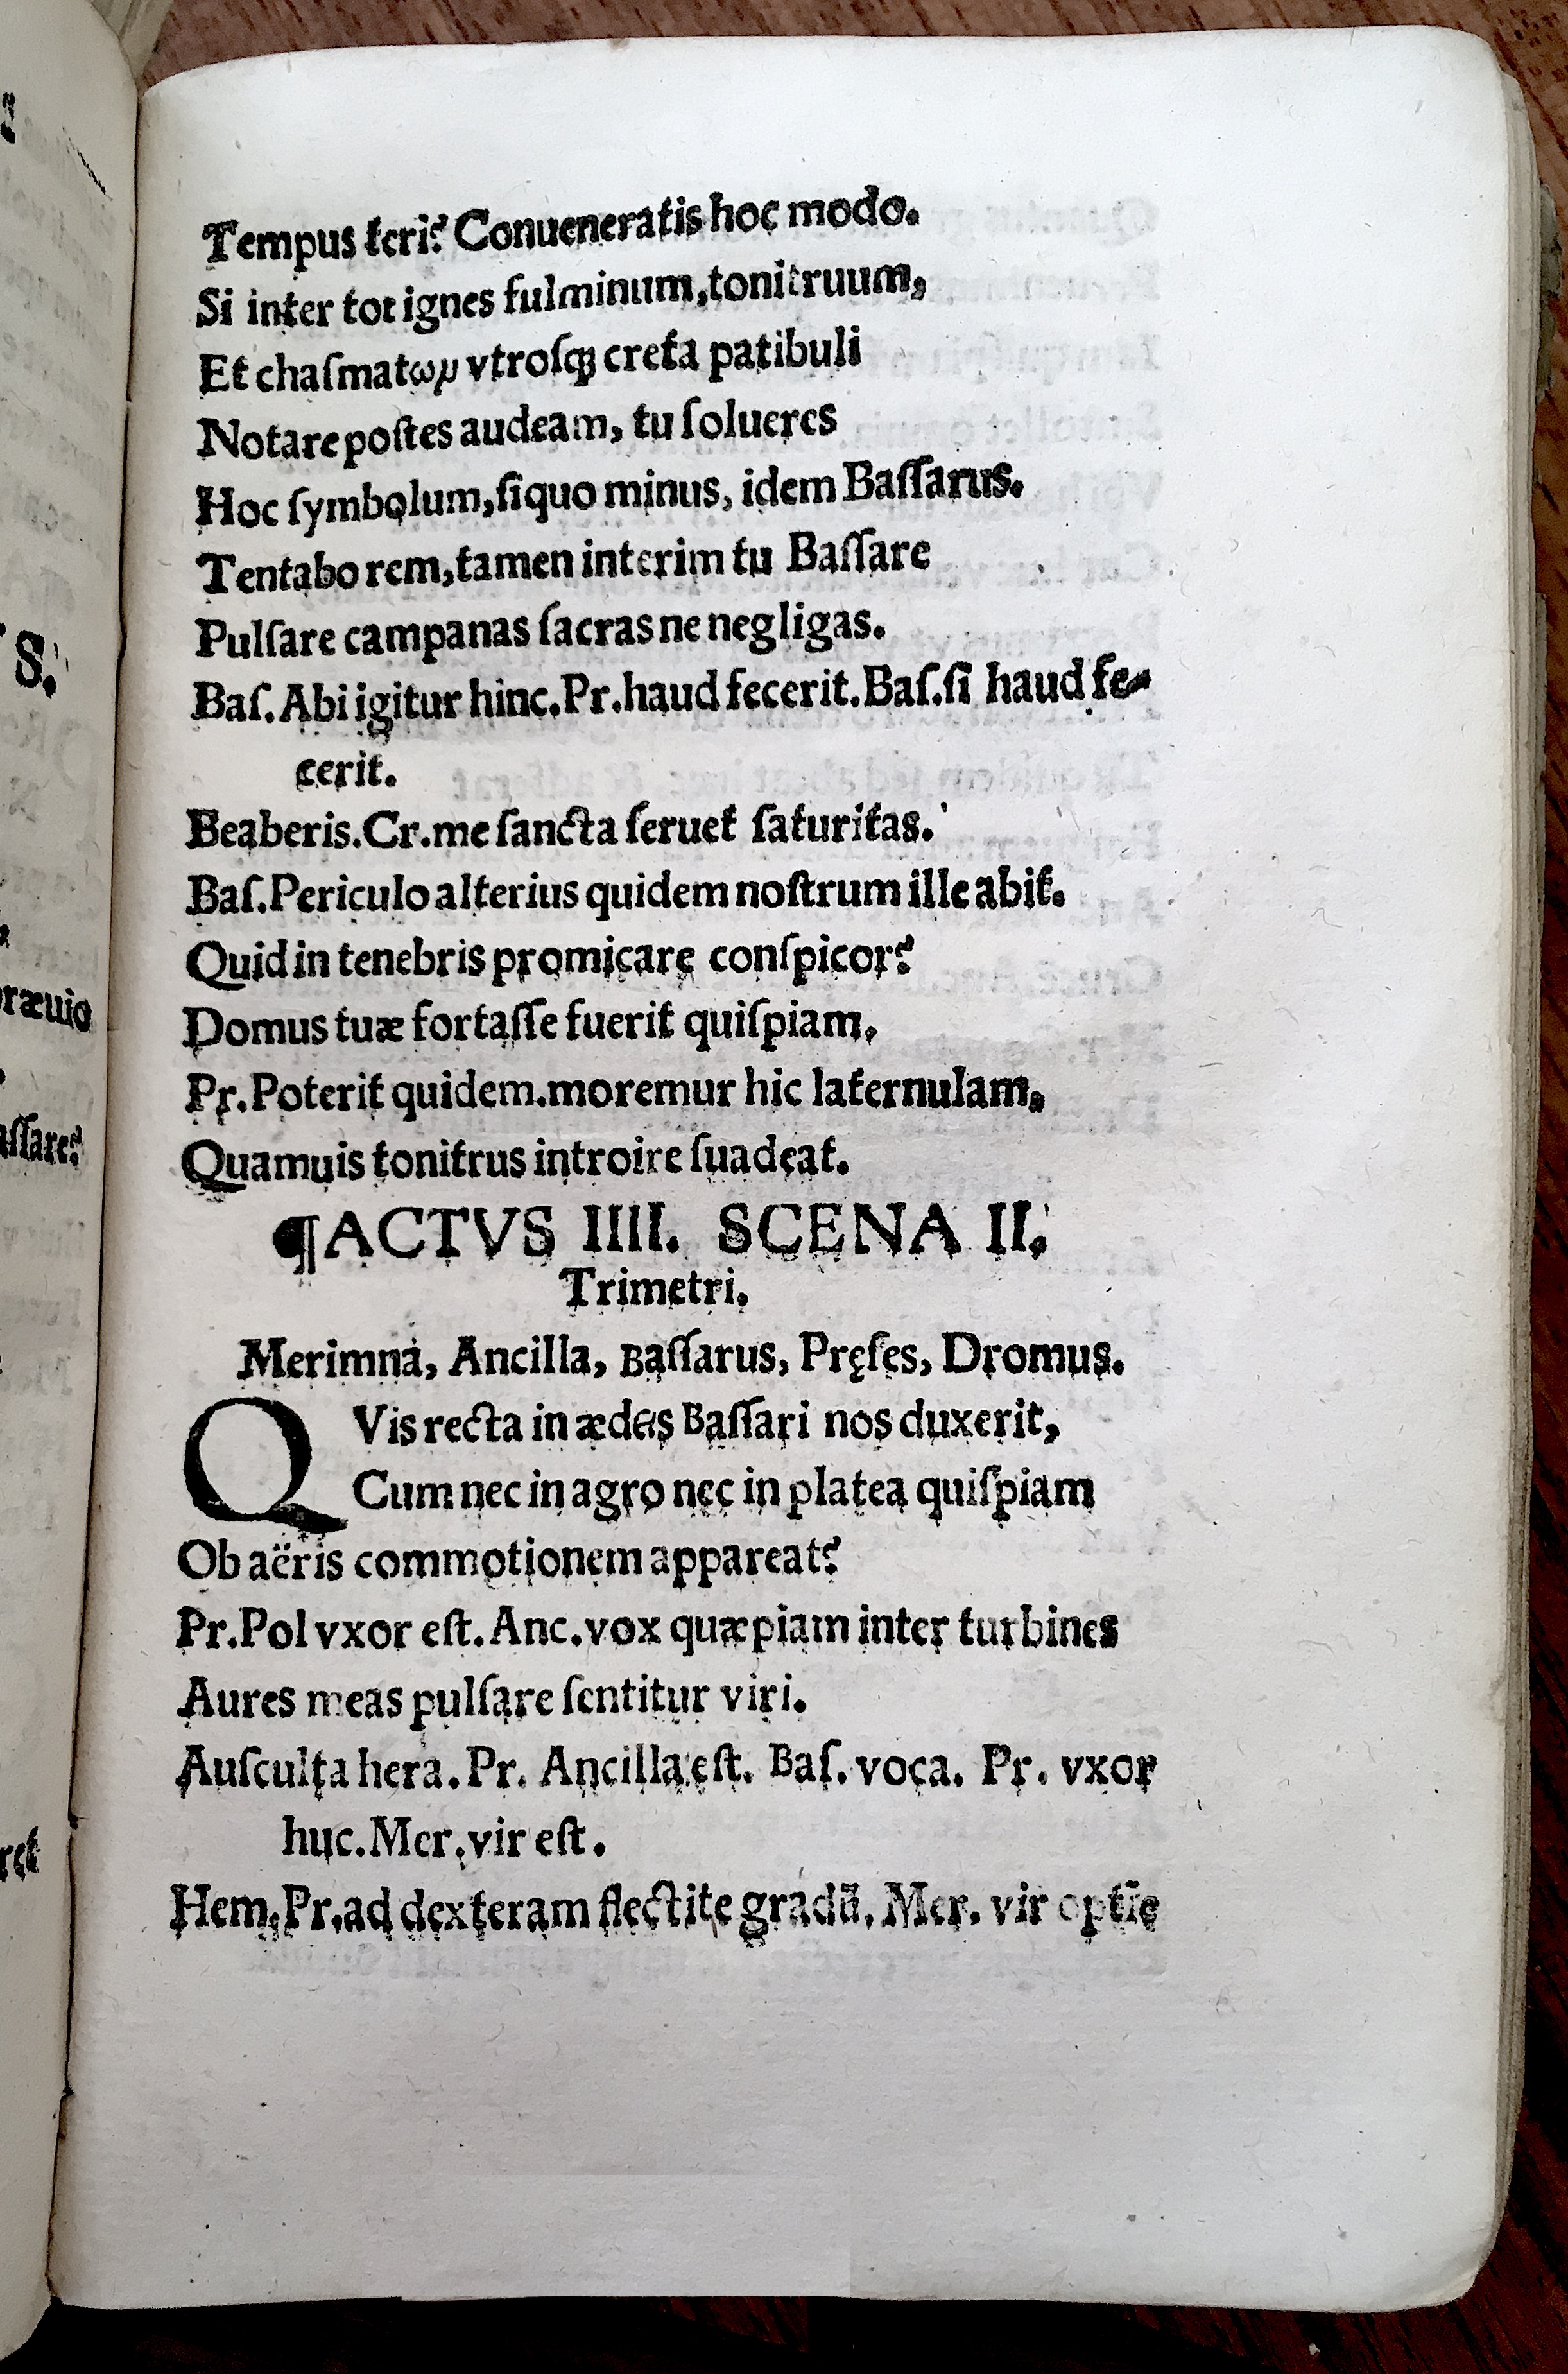 Tempus teri? Conueneratis hoc modo.
Si inter tot ignes fulminum,tonitruum,
Et chaſmatωμ vtroſq; creta patibuli
Notare poſtes audeam, tu ſolueres
Hoc ſymbolum,ſi quo minus, idem Baſſarus.
Tentabo rem,tamen interim tu Baſſare
Pulſare campanas ſacras ne negligas.
Baſ.Abi igitur hinc.Pr.haud fecerit.Baſ.ſi haud fe-
cerit.
Beaberis.Cr.me ſancta ſeruet ſaturitas.
Baſ.Periculo alterius quidem noſtrum ille abit.
Quid in tenebris promicare conſpicor?
Domus tuæ fortaſſe fuerit quiſpiam.
Pr.Poterit quidem.moremur hic laternulam,
Quamuis tonitrus introire ſuadeat.
¶ACTVS IIII. SCENA II.
Trimetri.
Merimna, Ancilla, Baſſarus, Pręſes, Dromus.
QVis recta in ædes Baſſari nos duxerit,
Cum nec in agro nec in platea quiſpiam
Ob aëris commotionem appareat?
Pr.Pol vxor eſt.Anc.vox quæpiam inter turbines
Aures meas pulſare ſentitur viri.
Auſculta hera.Pr. Ancilla eſt. Baſ. voca. Pr. vxor
huc.Mer.vir eſt.
Hem.Pr.ad dexteram flectite gradū. Mer. vir
ræuio
aſſare?
ret
S.